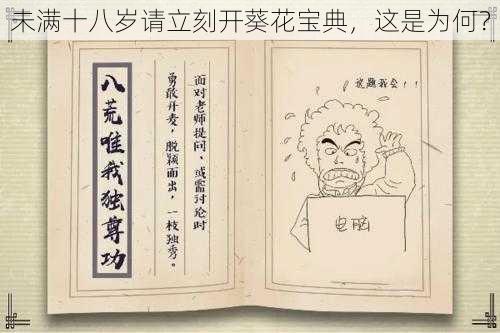 未满十八岁请立刻开葵花宝典，这是为何？
八荒唯我独尊功
面对老师提问、或需讨论时
勇敢开麦，脱颖而出，一枝独秀。
这题我会！！
电脑